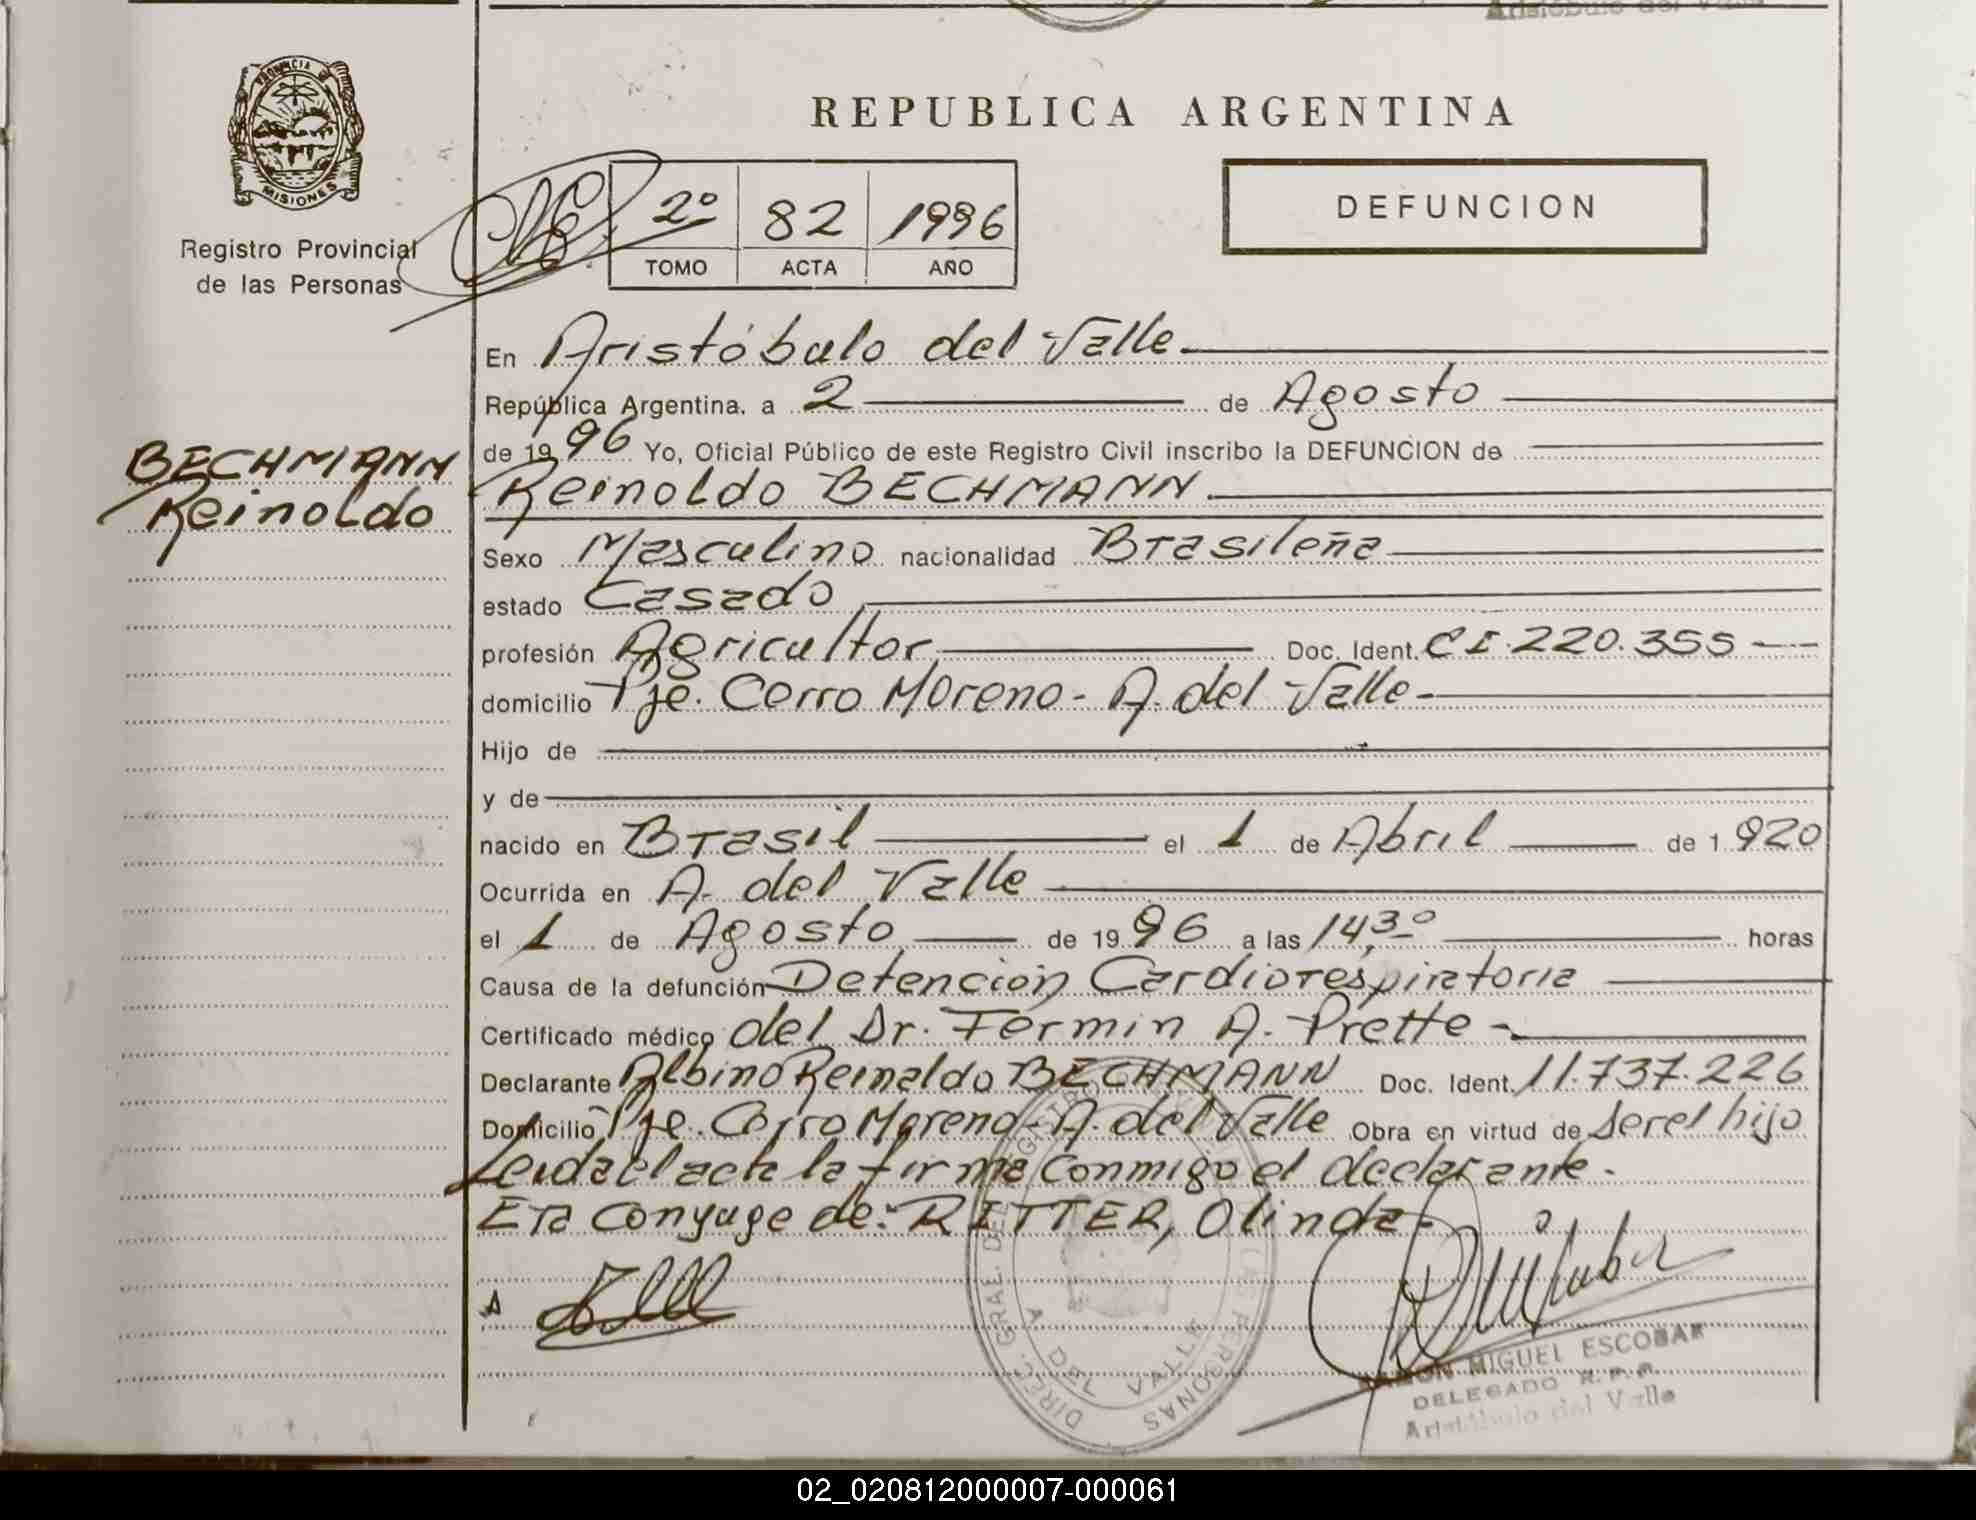 Aristóbulo del Valle
PROVINCIA DE
MISIONES
Registro Provincial
de las Personas
REPUBLICA ARGENTINA
DEFUNCION
2º 82 1996
TOMO ACTA AÑO
BECHMANN
Reinoldo
En Aristóbulo del Valle
República Argentina, a 2 de Agosto
de 1996 Yo, Oficial Público de este Registro Civil inscribo la DEFUNCION de
Reinoldo BECHMANN
Sexo Masculino nacionalidad Brasileña
estado Casado
profesión Agricultor Doc. Ident. CI.220.355
domicilio Pje. Cerro Moreno - A. del Valle
Hijo de
y de
nacido en Brasil el 1 de Abril de 1920
Ocurrida en A. del Valle
el 1 de Agosto de 1996 a las 14,30 horas
Causa de la defunción Detención Cardiorespiratoria
Certificado médico del Dr. Fermin A. Prette
Declarante Albino Reinaldo BECHMANN Doc. Ident. 11.737.226
Domicilio Pje. Cerro Moreno - A. del Valle Obra en virtud de ser el hijo
Leida el acta la firma conmigo el declarante.
Era Conyuge de: RITTER, Olinda
DIREC. GRAL. DEL REGISTRO DE LAS PERSONAS
A DEL VALLE
RAMON MIGUEL ESCOBAR
DELEGADO R.P.P.
Aristóbulo del Valle
02_020812000007-000061